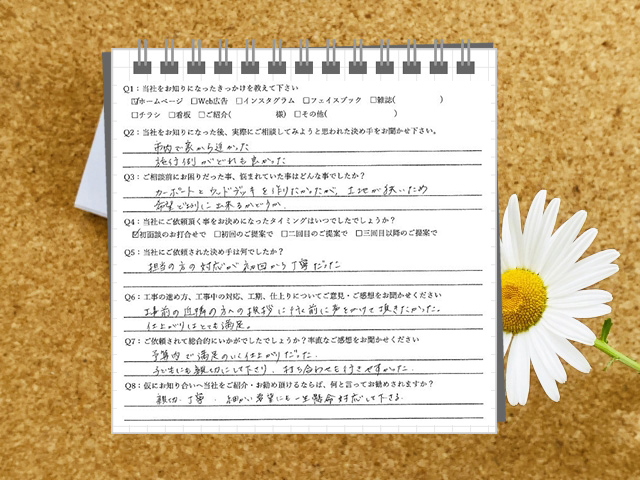 Q1：当社をお知りになったきっかけを教えて下さい
☑ホームページ □Web広告 □インスタグラム □フェイスブック □雑誌( )
□チラシ □看板 □ご紹介( 様) □その他( )
Q2：当社をお知りになった後、実際にご相談してみようと思われた決め手をお聞かせ下さい。
市内で家から近かった
施行例がどれも良かった
Q3：ご相談前にお困りだった事、悩まれていた事はどんな事でしたか？
カーポートとウッドデッキを作りたかったが、土地が狭いため
希望どおりに出来るかどうか.
Q4：当社にご依頼頂く事をお決めになったタイミングはいつでしたでしょうか？
☑初面談のお打合せで □初回のご提案で □二回目のご提案で □三回目以降のご提案で
Q5：当社にご依頼された決め手は何でしたか？
担当の方の対応が初回から丁寧だった
Q6：工事の進め方、工事中の対応、工期、仕上りについてご意見・ご感想をお聞かせください
工事前の近隣の方への挨拶に行く前に声をかけて頂きたかった。
仕上がりはとても満足。
Q7：ご依頼されて総合的にいかがでしたでしょうか？率直なご感想をお聞かせください
予算内で満足のいく仕上がりだった.
子どもにも親切にして下さり、打ち合わせも行きやすかった.
Q8：仮にお知り合いへ当社をご紹介・お勧め頂けるならば、何と言ってお勧めされますか？
親切、丁寧、細かい希望にも一生懸命対応して下さる.